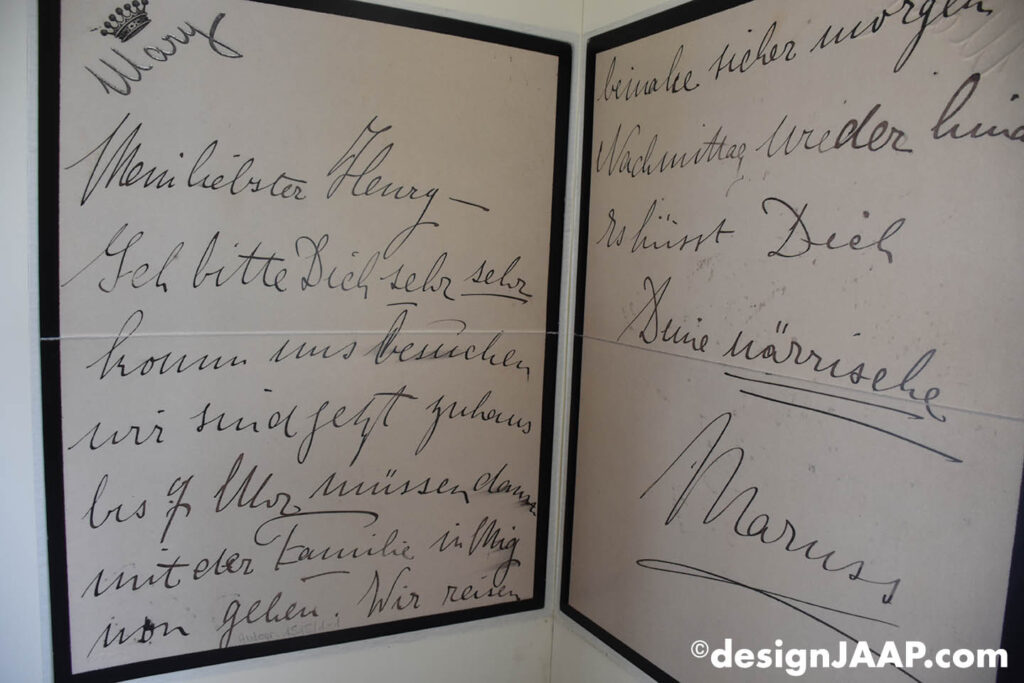 Mary
Mein liebster Henry –
Ich bitte Dich sehr sehr
komm uns besuchen
wir sind jetzt zuhaus
bis 9 Uhr müssen dann
mit der Familie in Mig
non gehen. Wir reisen
beinahe sicher morgen
Nachmittag wieder
es küsst Dich
Deine närrische
Maruss
©designJAAP.com